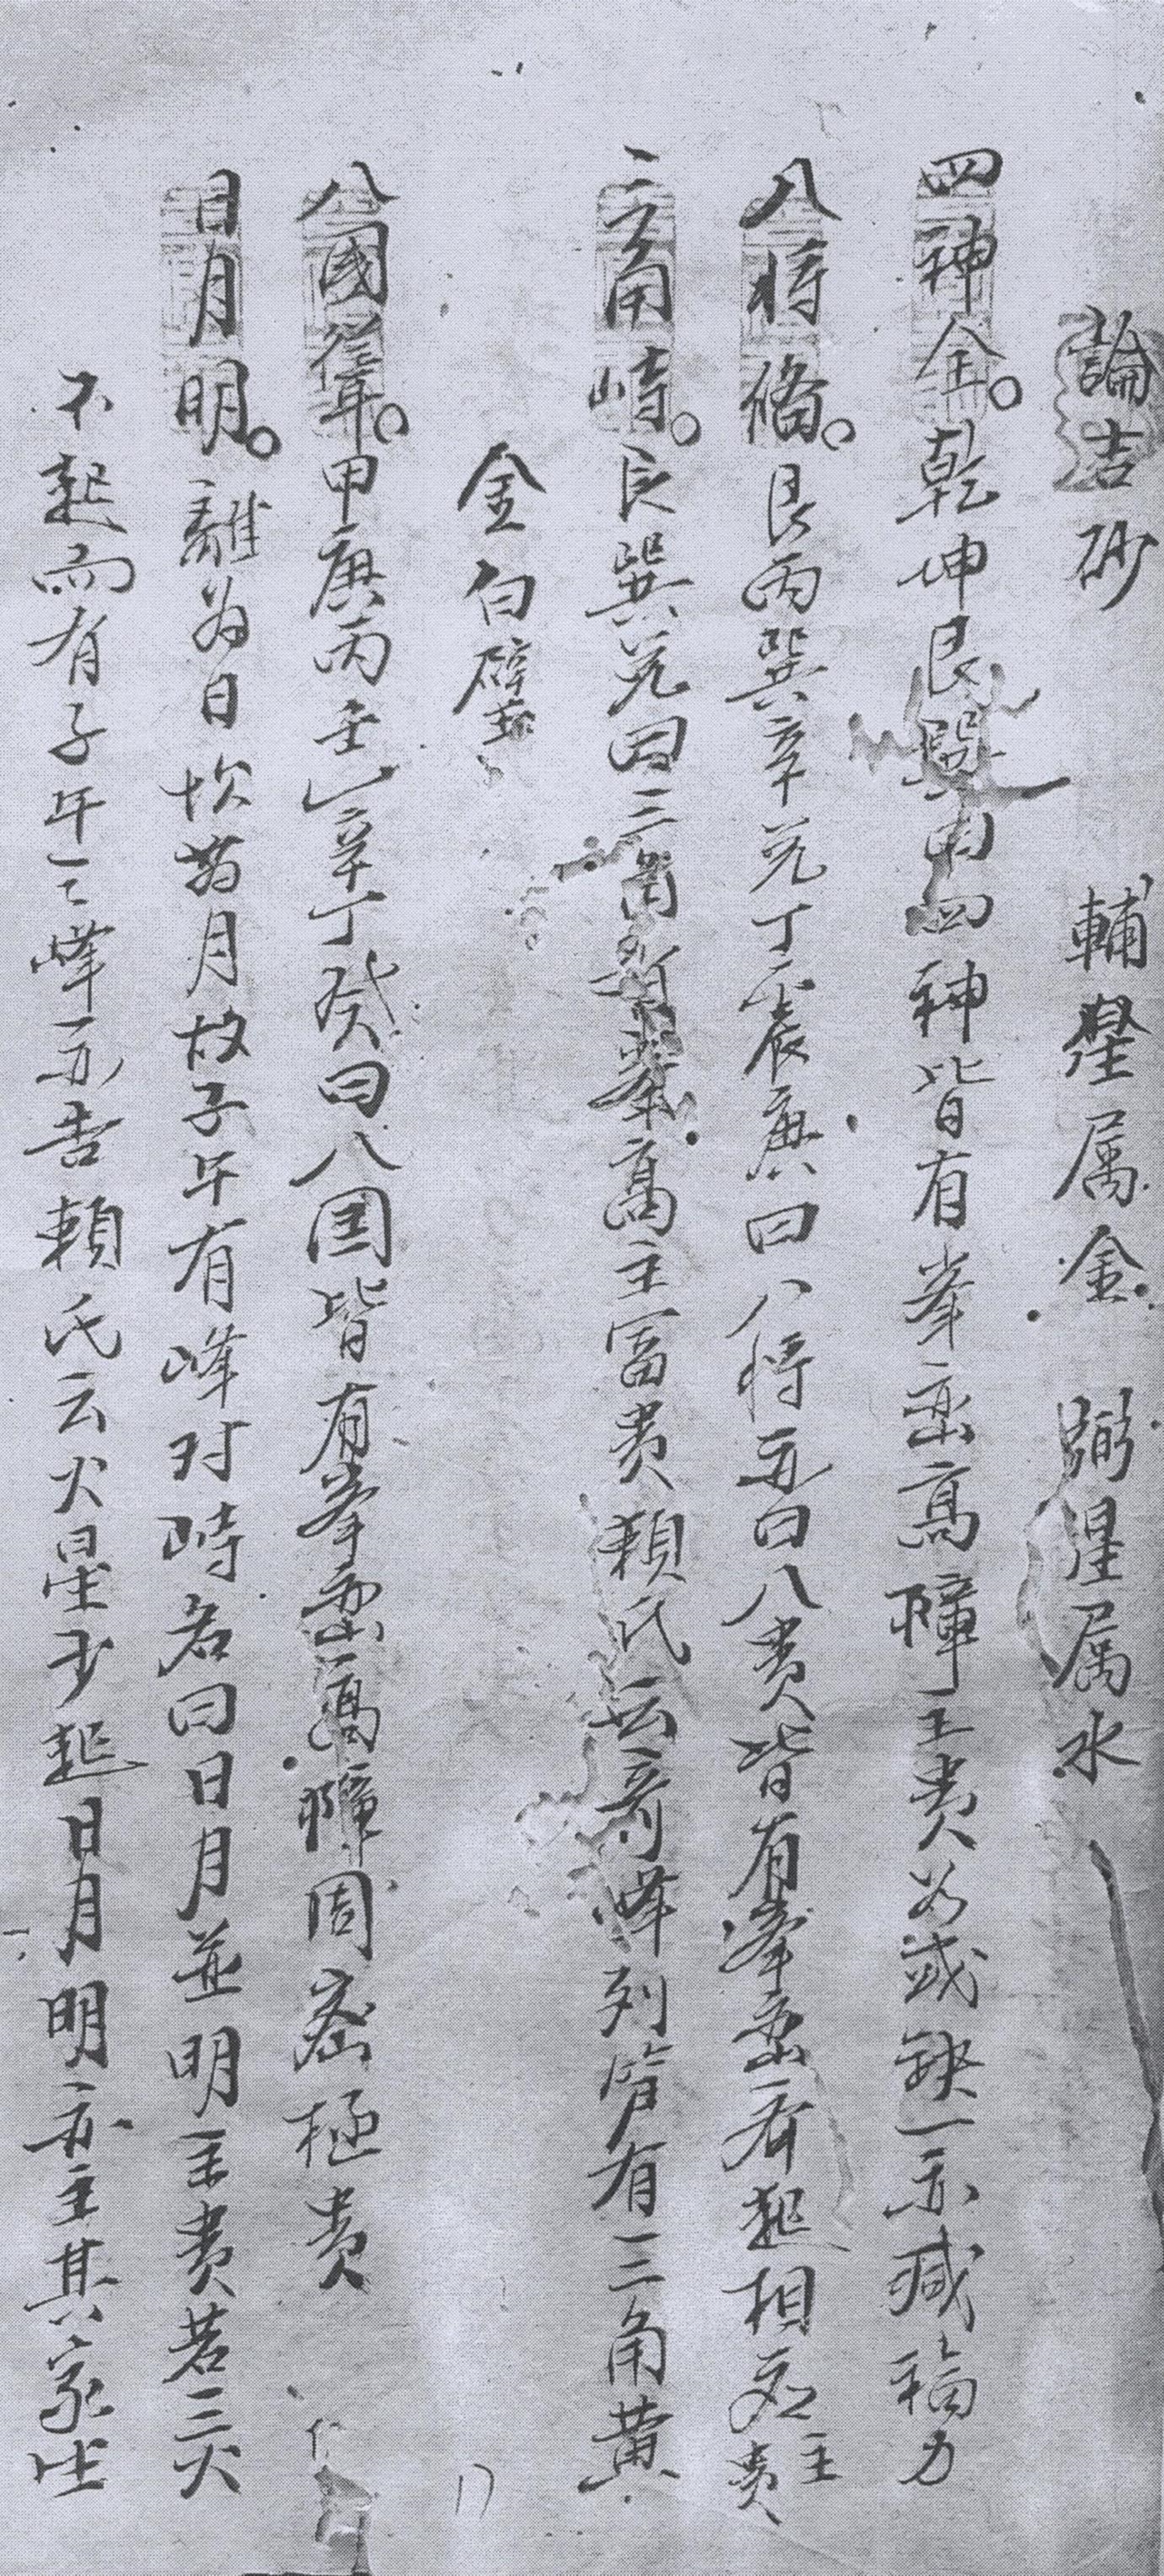 論吉砂 輔星属金 弼星属水
四神全。乾坤艮巽曰四神皆有峯巒高障主贵若或缺一亦减福力
八将俻。艮丙巽辛兑丁震庚曰八将亦曰八贵皆有峯巒齐起相应主贵
三角峙。艮巽兑曰三角峯高主富贵賴氏云奇峰列管有三角黄
金白璧
八國峯。甲庚丙壬乙辛丁癸曰八国皆有峯巒高障周密極贵
日月明。離為日坎為月故子午有峰对峙名曰日月並明主贵若三火
不起而有子午二峰亦吉賴氏云火星少起日月明亦主其家出